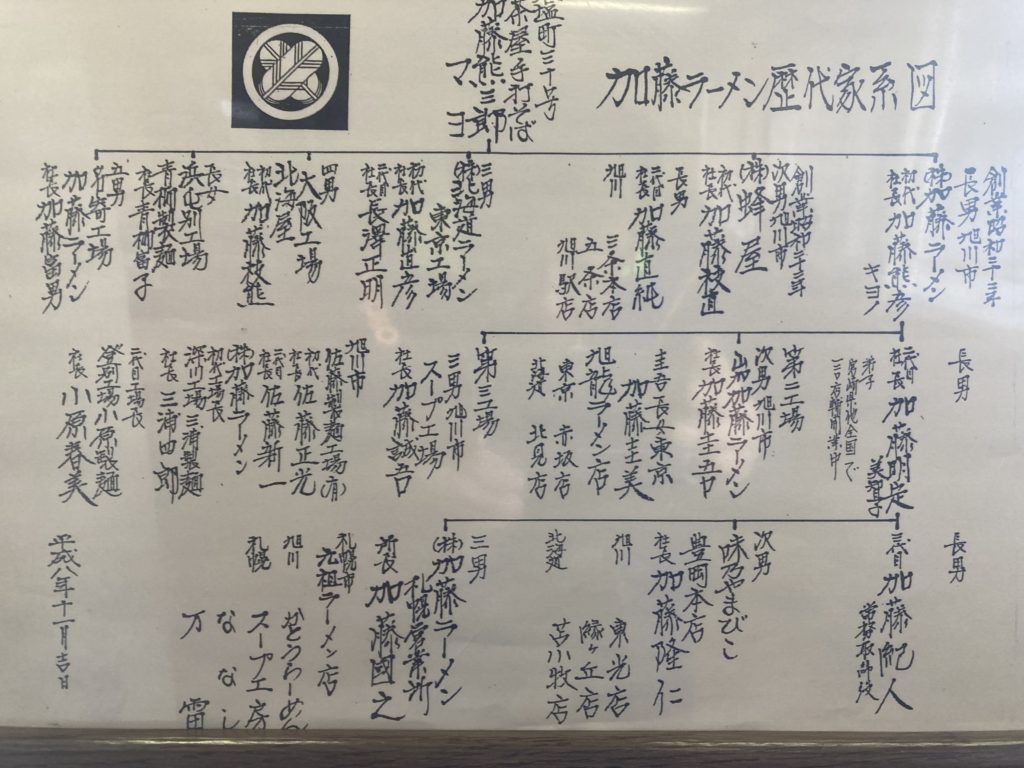 加藤ラーメン歴代家系図
塩町三十号
茶屋手打そば
加藤熊三郎
マヨ
創業昭和二十二年
長男 旭川市
(株)加藤ラーメン
初代社長 加藤熊彦
キヨ
創業昭和二十二年
次男 旭川市
(株)蜂屋
初代社長 加藤枝直
長男
二代目社長 加藤直純
旭川
三条本店
五条店
旭川駅店
三男
東京工場
初代社長 加藤直彦
二代目社長 長澤正明
四男
大阪工場
北海屋
初代社長 加藤枝熊
長女
浜頓別工場
青柳製麺
社長 青柳富子
五男
名寄工場
加藤ラーメン
社長 加藤富男
長男
二代目社長 加藤明定
美智子
弟子
宮崎県他全国で
第二工場
次男 旭川市
加藤ラーメン
社長 加藤圭吾
圭吾長女東京
加藤圭美
旭龍ラーメン店
東京 赤坂店
北海道 北見店
第三工場
三男 旭川市
スープ工場
社長 加藤誠吾
旭川市
佐藤製麺工場(有)
初代社長 佐藤正光
二代目社長 佐藤新一
(株)加藤ラーメン
初代工場長
深川工場 三浦製麺
社長 三浦四郎
二代目工場長
登別工場 小原製麺
社長 小原春美
長男
三代目 加藤紀人
営業取締役
次男
味乃やまびこ
豊岡本店
社長 加藤隆仁
旭川
東光店
緑ヶ丘店
北海道 苫小牧店
三男
(株)加藤ラーメン
札幌営業所
所長 加藤國之
札幌市
元祖ラーメン店
旭川 かとうらーめん
札幌 スープ工房
ななし
万雷
平成八年十一月吉日